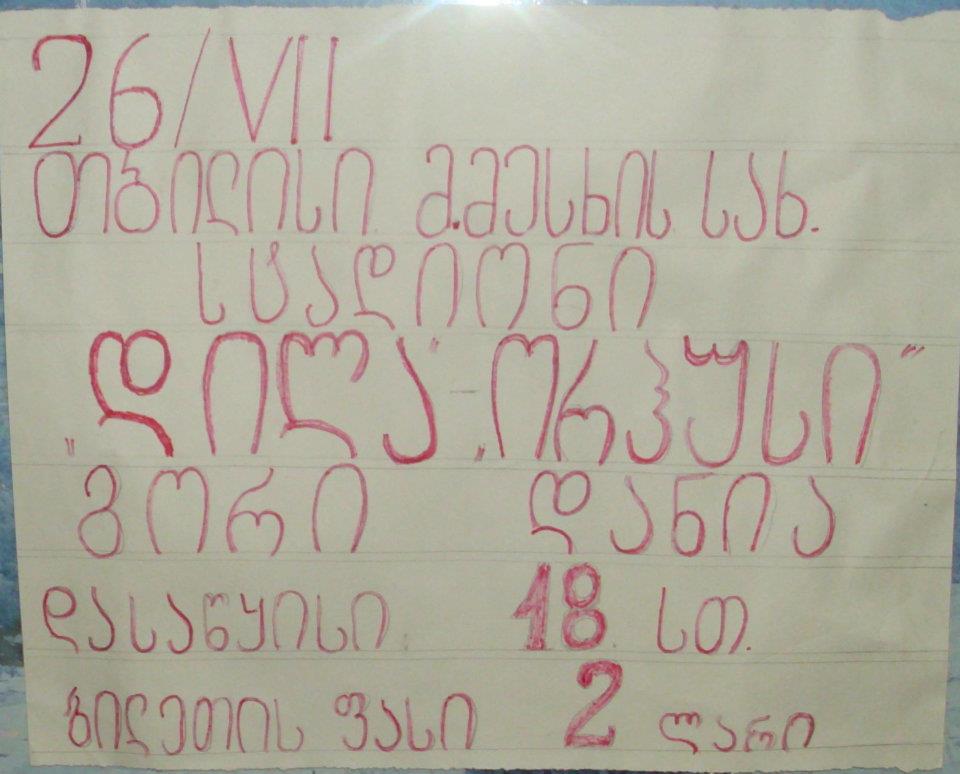 26/VII
თბილისი მ.მესხის სახ.
სტადიონი
"დილა" - "ორჰუსი"
გორი დანია
დასაწყისი 18 სთ.
ბილეთის ფასი 2 ლარი